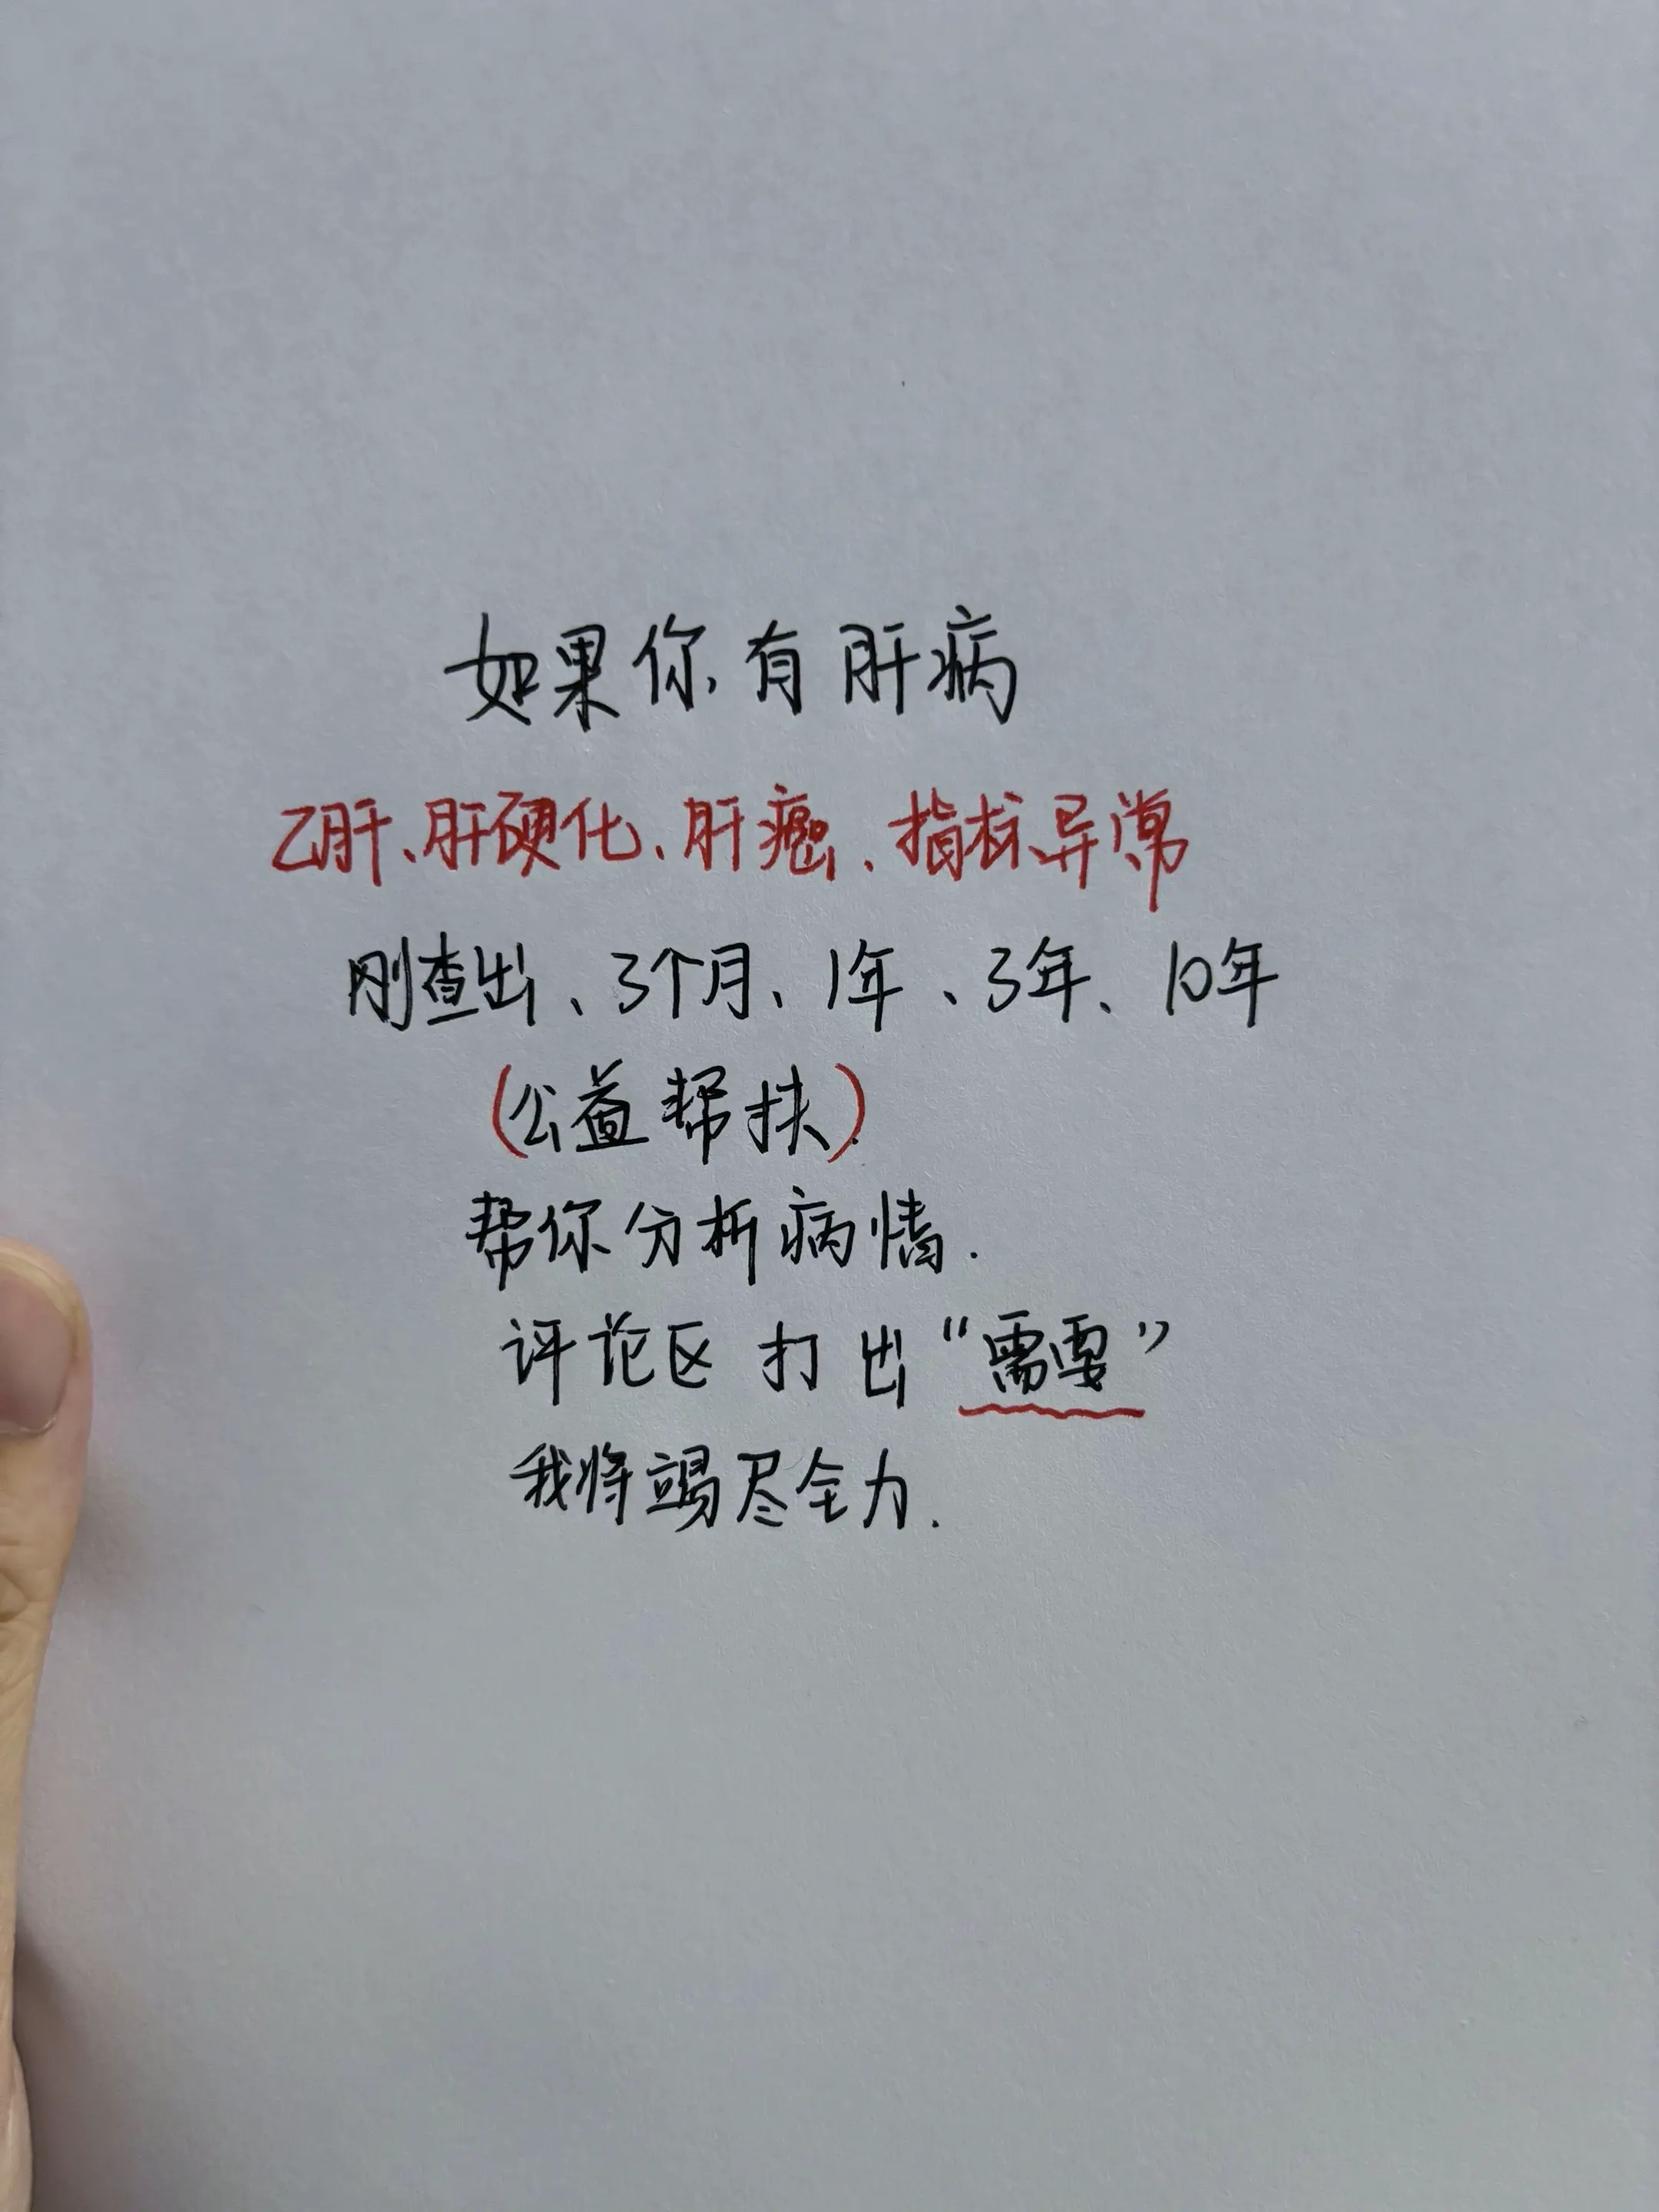 如果你有肝病
乙肝、肝硬化、肝癌、指标异常
刚查出、3个月、1年、3年、10年
(公益帮扶)
帮你分析病情.
评论区打出“需要”
我将竭尽全力.